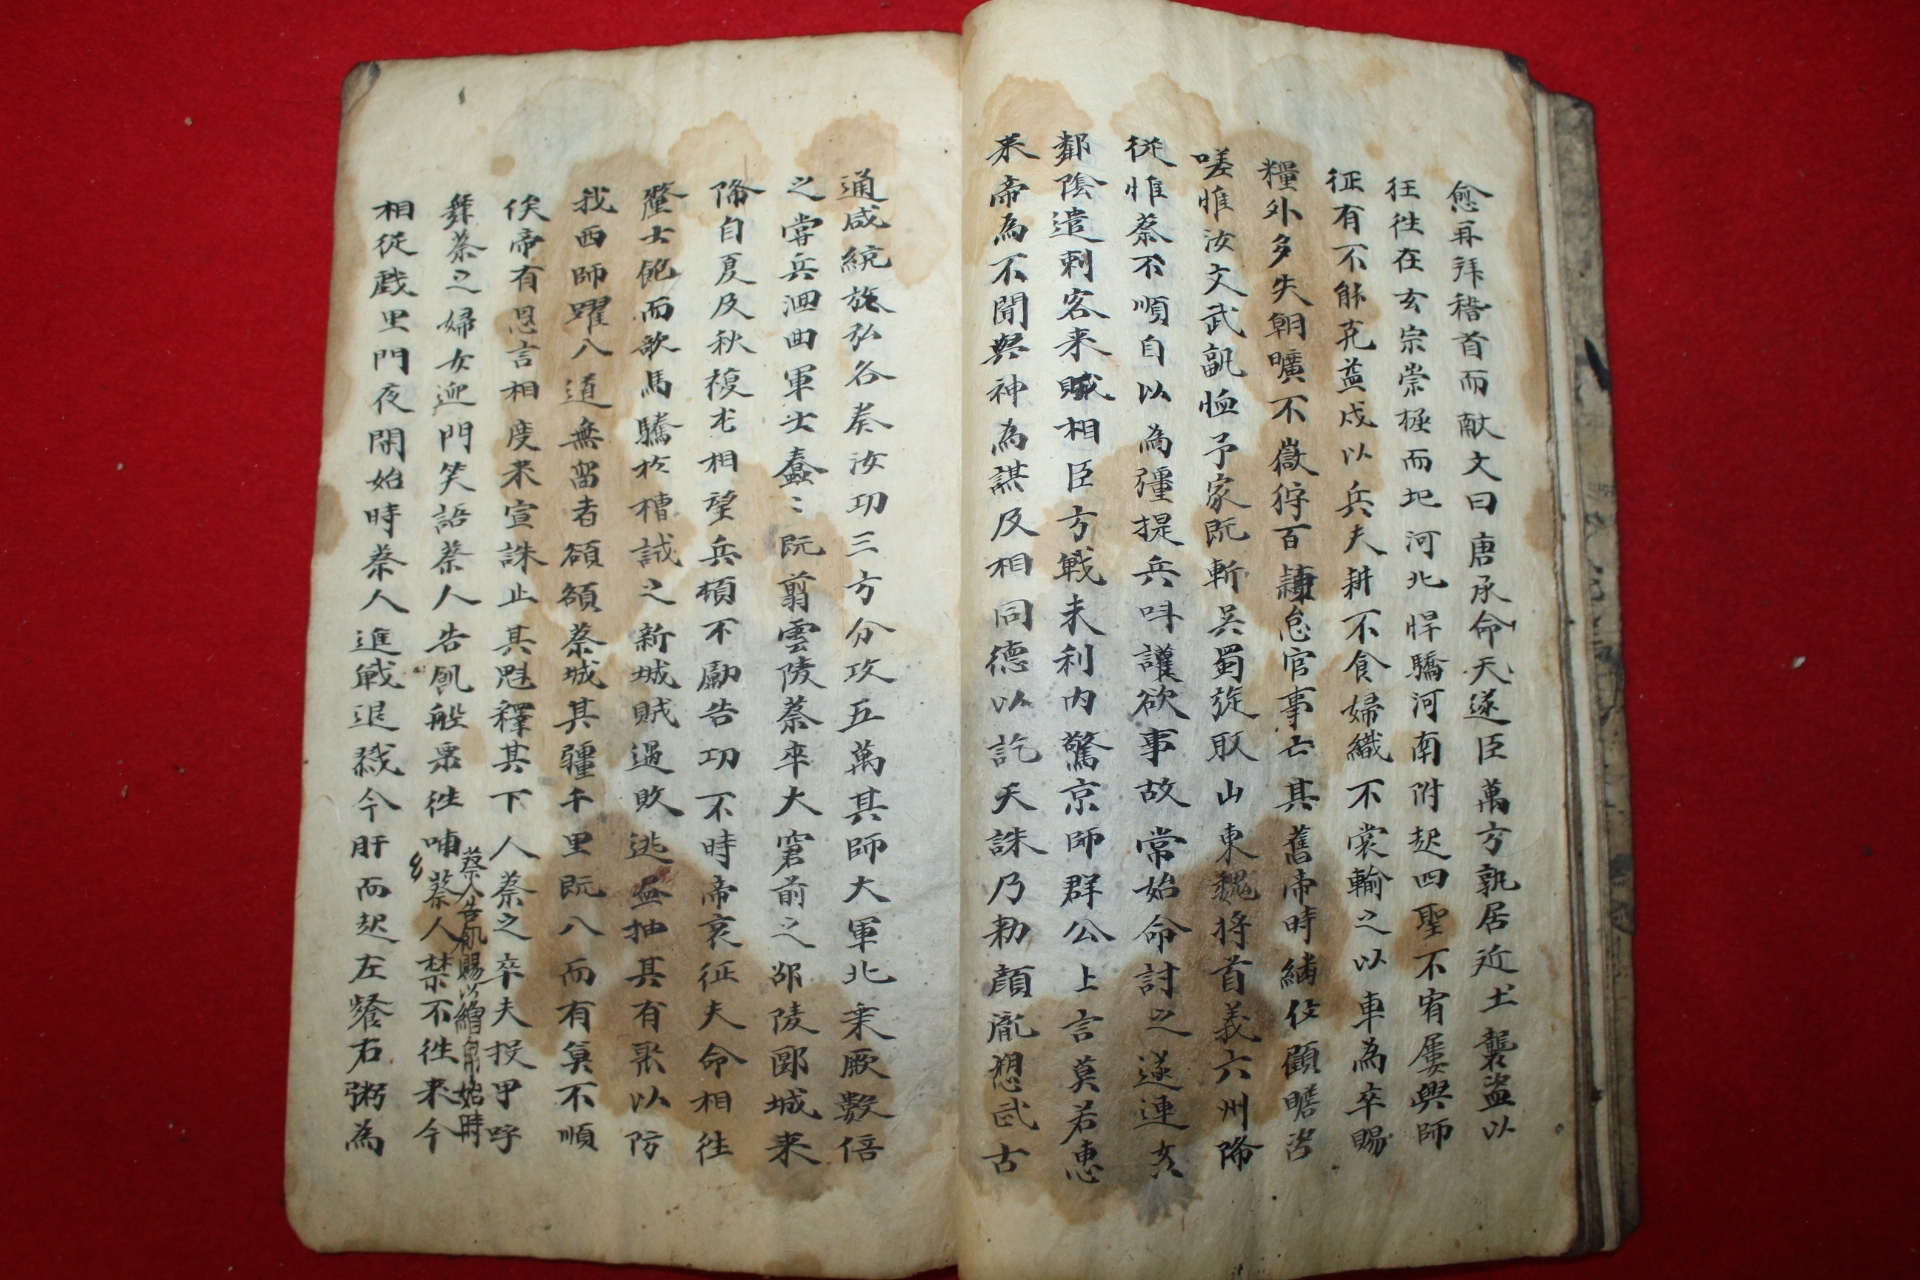 愈再拜稽首而献文曰唐承命天遂臣萬方孰居近土襲盜以
狂徃在玄宗崇極而圮河北悍驕河南附起四聖不宥屢興師
征有不能克益戍以兵夫耕不食婦織不裳輸之以車為卒賜
糧外多失朝曠不嶽狩百隸怠官事亡其舊帝時繼位顧瞻咨
嗟惟汝文武孰恤予家既斬吳蜀旋取山東魏将首義六州降
從惟蔡不順自以為彊提兵叫讙欲事故常始命討之遂連姦
鄰陰遣刺客来賊相臣方戰未利内驚京師群公上言莫若惠
来帝為不聞與神為謀及相同德以訖天誅乃勑顔胤愬武古
通咸統旋弘各奏汝功三方分攻五萬其師大軍北乗厥數倍
之嘗兵洄曲軍士蠢〻既翦雲陵蔡卒大窘前之邵陵郾城来
降自夏及秋複屯相望兵頓不勵告功不時帝哀征夫命相徃
釐士飽而歌馬騰於槽試之新城賊遇敗逃盡抽其有聚以防
我西師躍入道無留者頟頟蔡城其疆千里既入而有莫不順
俟帝有恩言相度来宣誅止其魁釋其下人蔡之卒夫投甲呼
舞蔡之婦女迎門笑語蔡人告飢船粟徃哺蔡人禁不徃来今
蔡人告飢賜以繒布始時
相從戱里門夜開始時蔡人進戰退戮今肝而起左飱右粥為